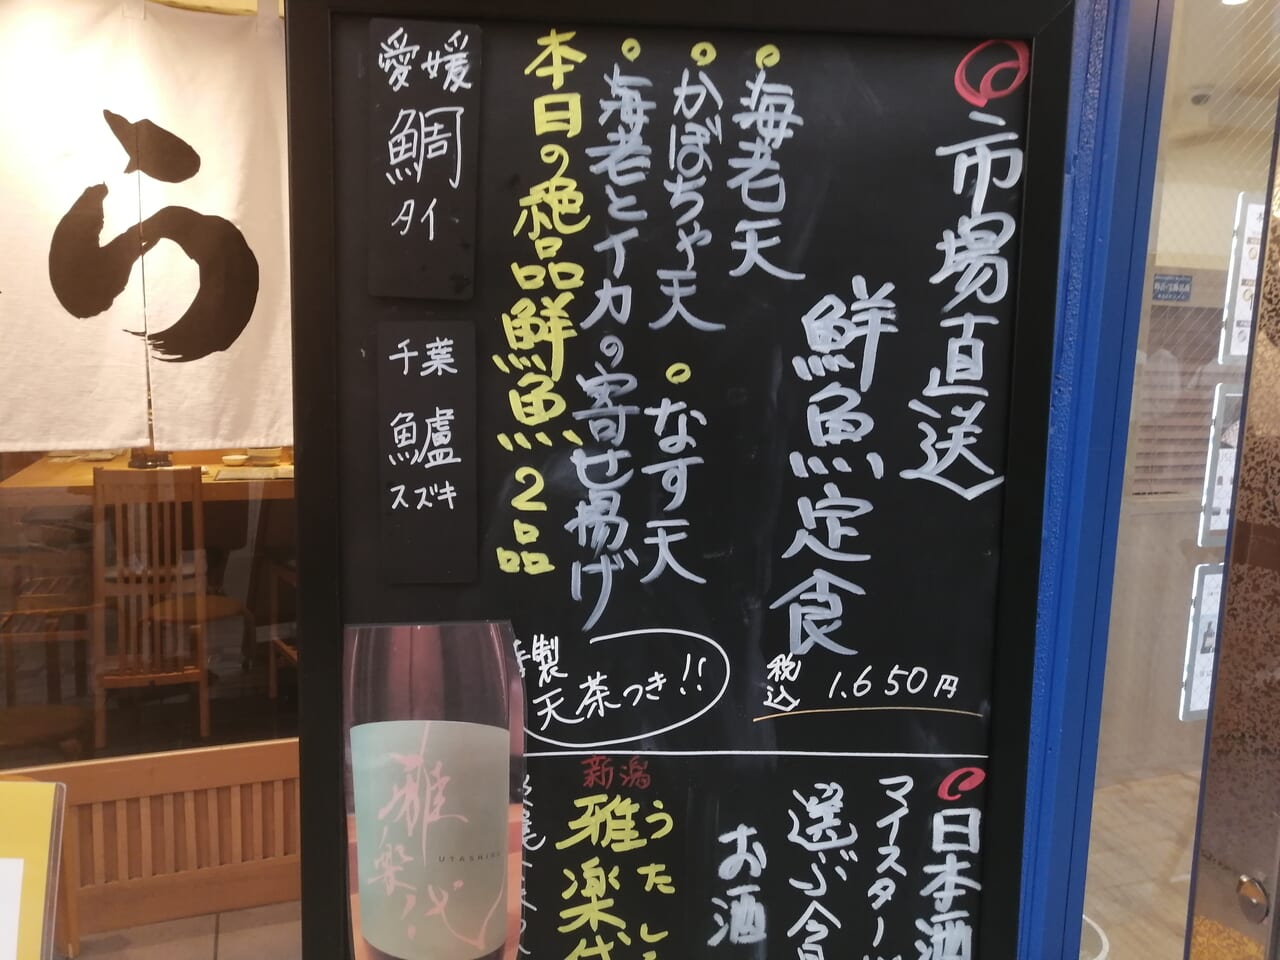 市場直送
鮮魚定食
税込 1.650円
海老天
かぼちゃ天
なす天
海老とイカの寄せ揚げ
本日の絶品鮮魚2品
愛媛
鯛
タイ
千葉
鱸
スズキ
製
天茶つき!!
日本酒
マイスター
選ぶ今
お酒
うたし
新潟
雅楽代
雅楽代
UTASHIRO
ら